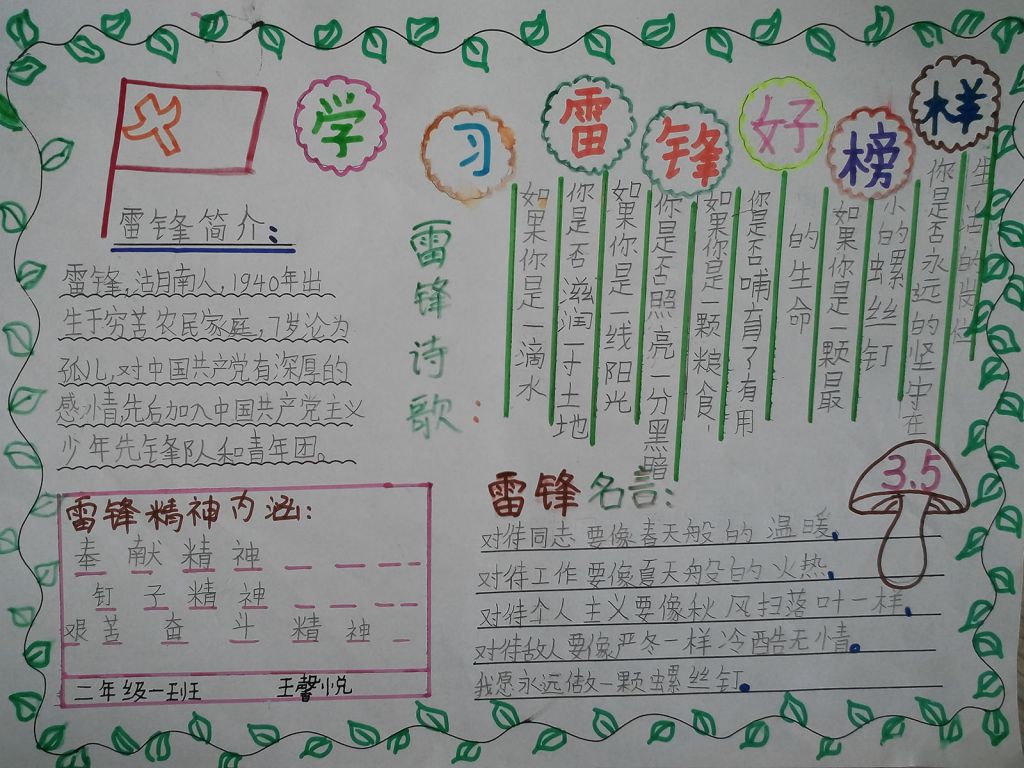 学习雷锋好榜样
雷锋简介:
雷锋,沽月南人,1940年出
生于穷苦农民家庭,7岁沦为
孤儿,对中国共产党有深厚的
感情,先后加入中国共产党主义
少年先锋队和青年团。
雷锋诗歌:
如果你是一滴水
你是否滋润一寸土地
如果你是一线阳光
你是否照亮一分黑暗
如果你是一颗粮食
你是否哺育了有用
的生命
如果你是一颗最
小的螺丝钉
你是否永远的坚守在
生活的岗位
雷锋精神内涵:
奉献精神
钉子精神
艰苦奋斗精神
二年级一班 王馨悦
3.5
雷锋名言:
对待同志要像春天般的温暖.
对待工作要像夏天般的火热.
对待个人主义要像秋风扫落叶一样.
对待敌人要像严冬一样冷酷无情.
我愿永远做一颗螺丝钉.